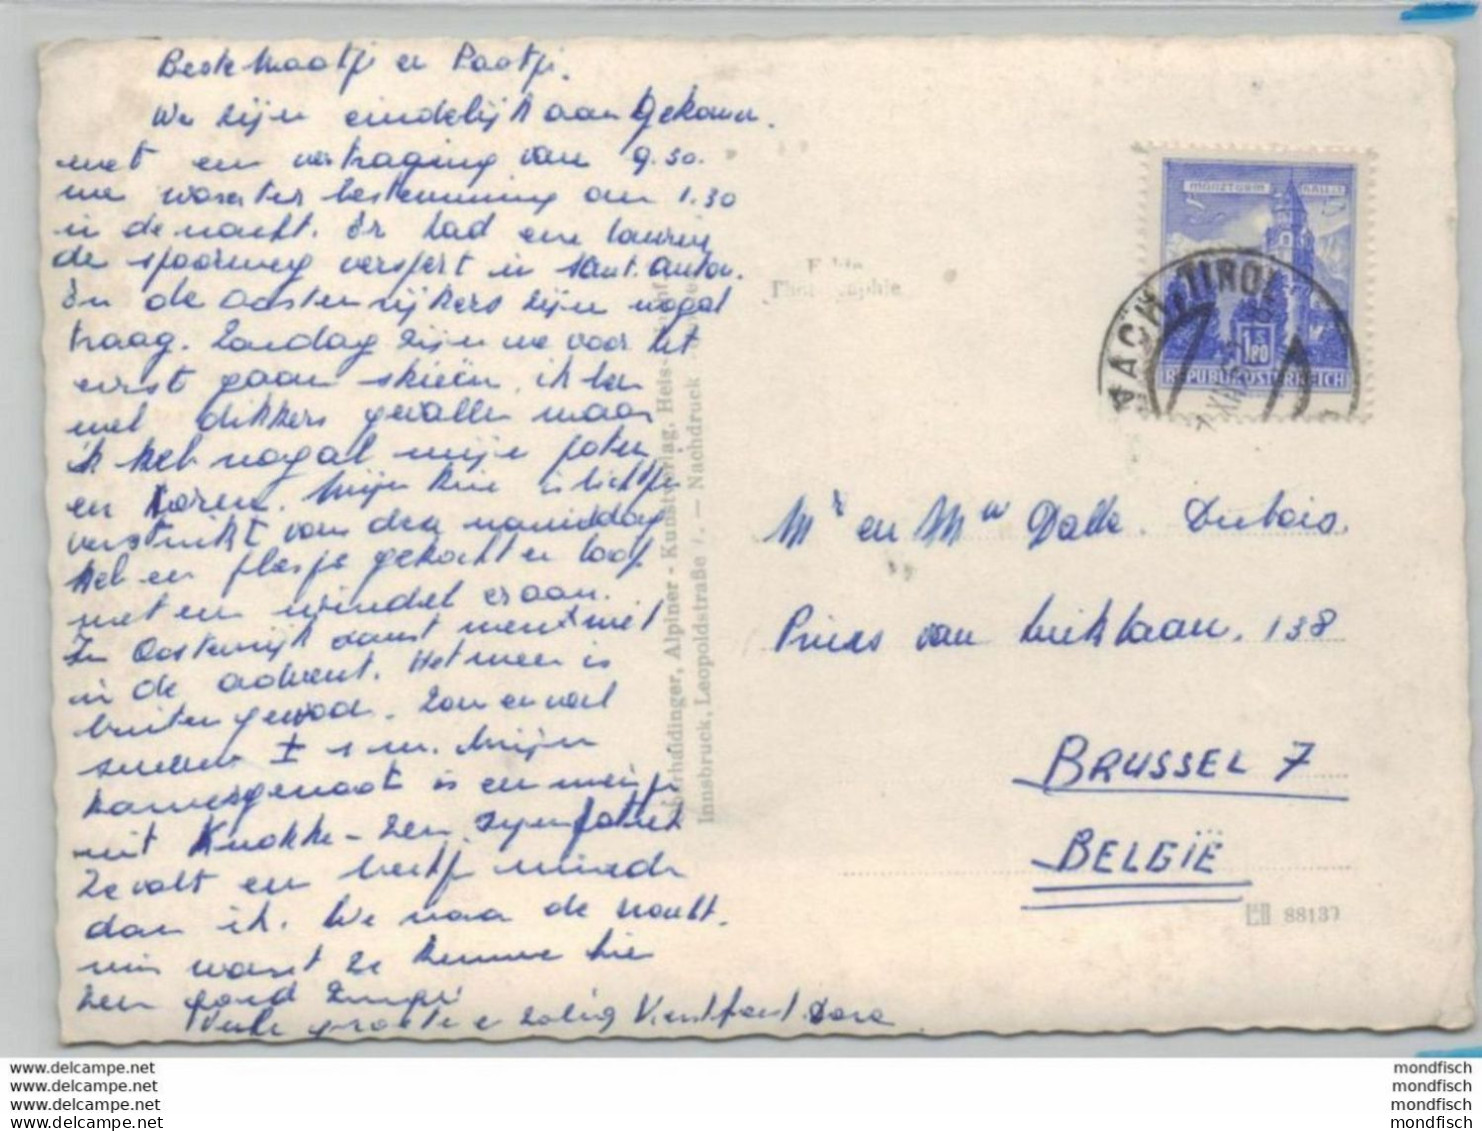 Beste Maatji en Paatji.
We zijn eindelijk aan gekomen.
met een vertraging van 9.30.
we waren ter bestemming om 1.30
in de nacht. Er had een lawine
de spoorweg verspert in Sant. Anton.
En de Oostenrijkers zijn nogal
traag. Zondag zijn we voor het
eerst gaan skiën. ik ben
wel dikkers gevallen maar
ik heb nogal mijn poten
en horen. Mijn knie is lichtjes
verstuikt van den namiddag
heb een flesje gekocht en loop
met een windel eraan.
In Oostenrijk danst men niet
in de advent. Het weer is
buitengewoon. Zon en veel
sneeuw ± 1 m. Mijn
kamergenoot is een meisje
uit Knokke - zeer sympatiek
Ze valt een beetje minder
dan ik. We naar de
want ze kennen hier
zeer goed
Vele groeten en zalig Kerstfeest Dora
Echte
Photographie
Oberhaidinger, Alpiner - Kunstverlag,
Innsbruck, Leopoldstraße - Nachdruck
MÜNZTURM HALL
1.50
REPUBLIK ÖSTERREICH
ACH, TIROL
Mr en Mw Dalle. Dubois.
Prins van Luiklaan. 138
BRUSSEL 7
BELGIË
88137
www.delcampe.net
www.delcampe.net
www.delcampe.net
www.delcampe.net
mondfisch
mondfisch
mondfisch
mondfisch